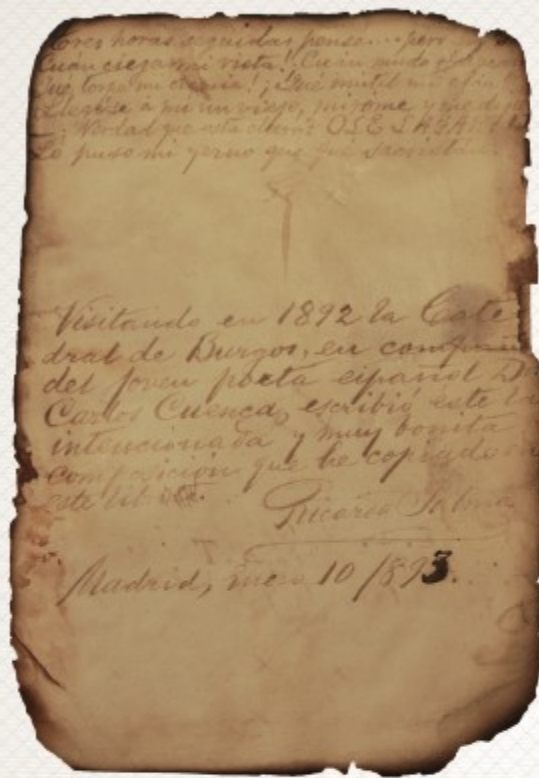 Tres horas seguidas pensé... per
Cuán ciega mi vista! Cuán mudo
Que torpe mi ciencia! ¡Qué inútil mi afán
Llegóse a mi un viejo, miróme y me dijo
Verdad que está claro OSE SAGA
Lo puso mi yerno que fué sacristán
Visitando en 1892 la Cate
dral de Burgos, en compañia
del joven poeta español D
Carlos Cuenca, escribió este
intencionada y muy bonita
composición que he copiado en
este
Ricardo Palma
Madrid, enero 10/893.